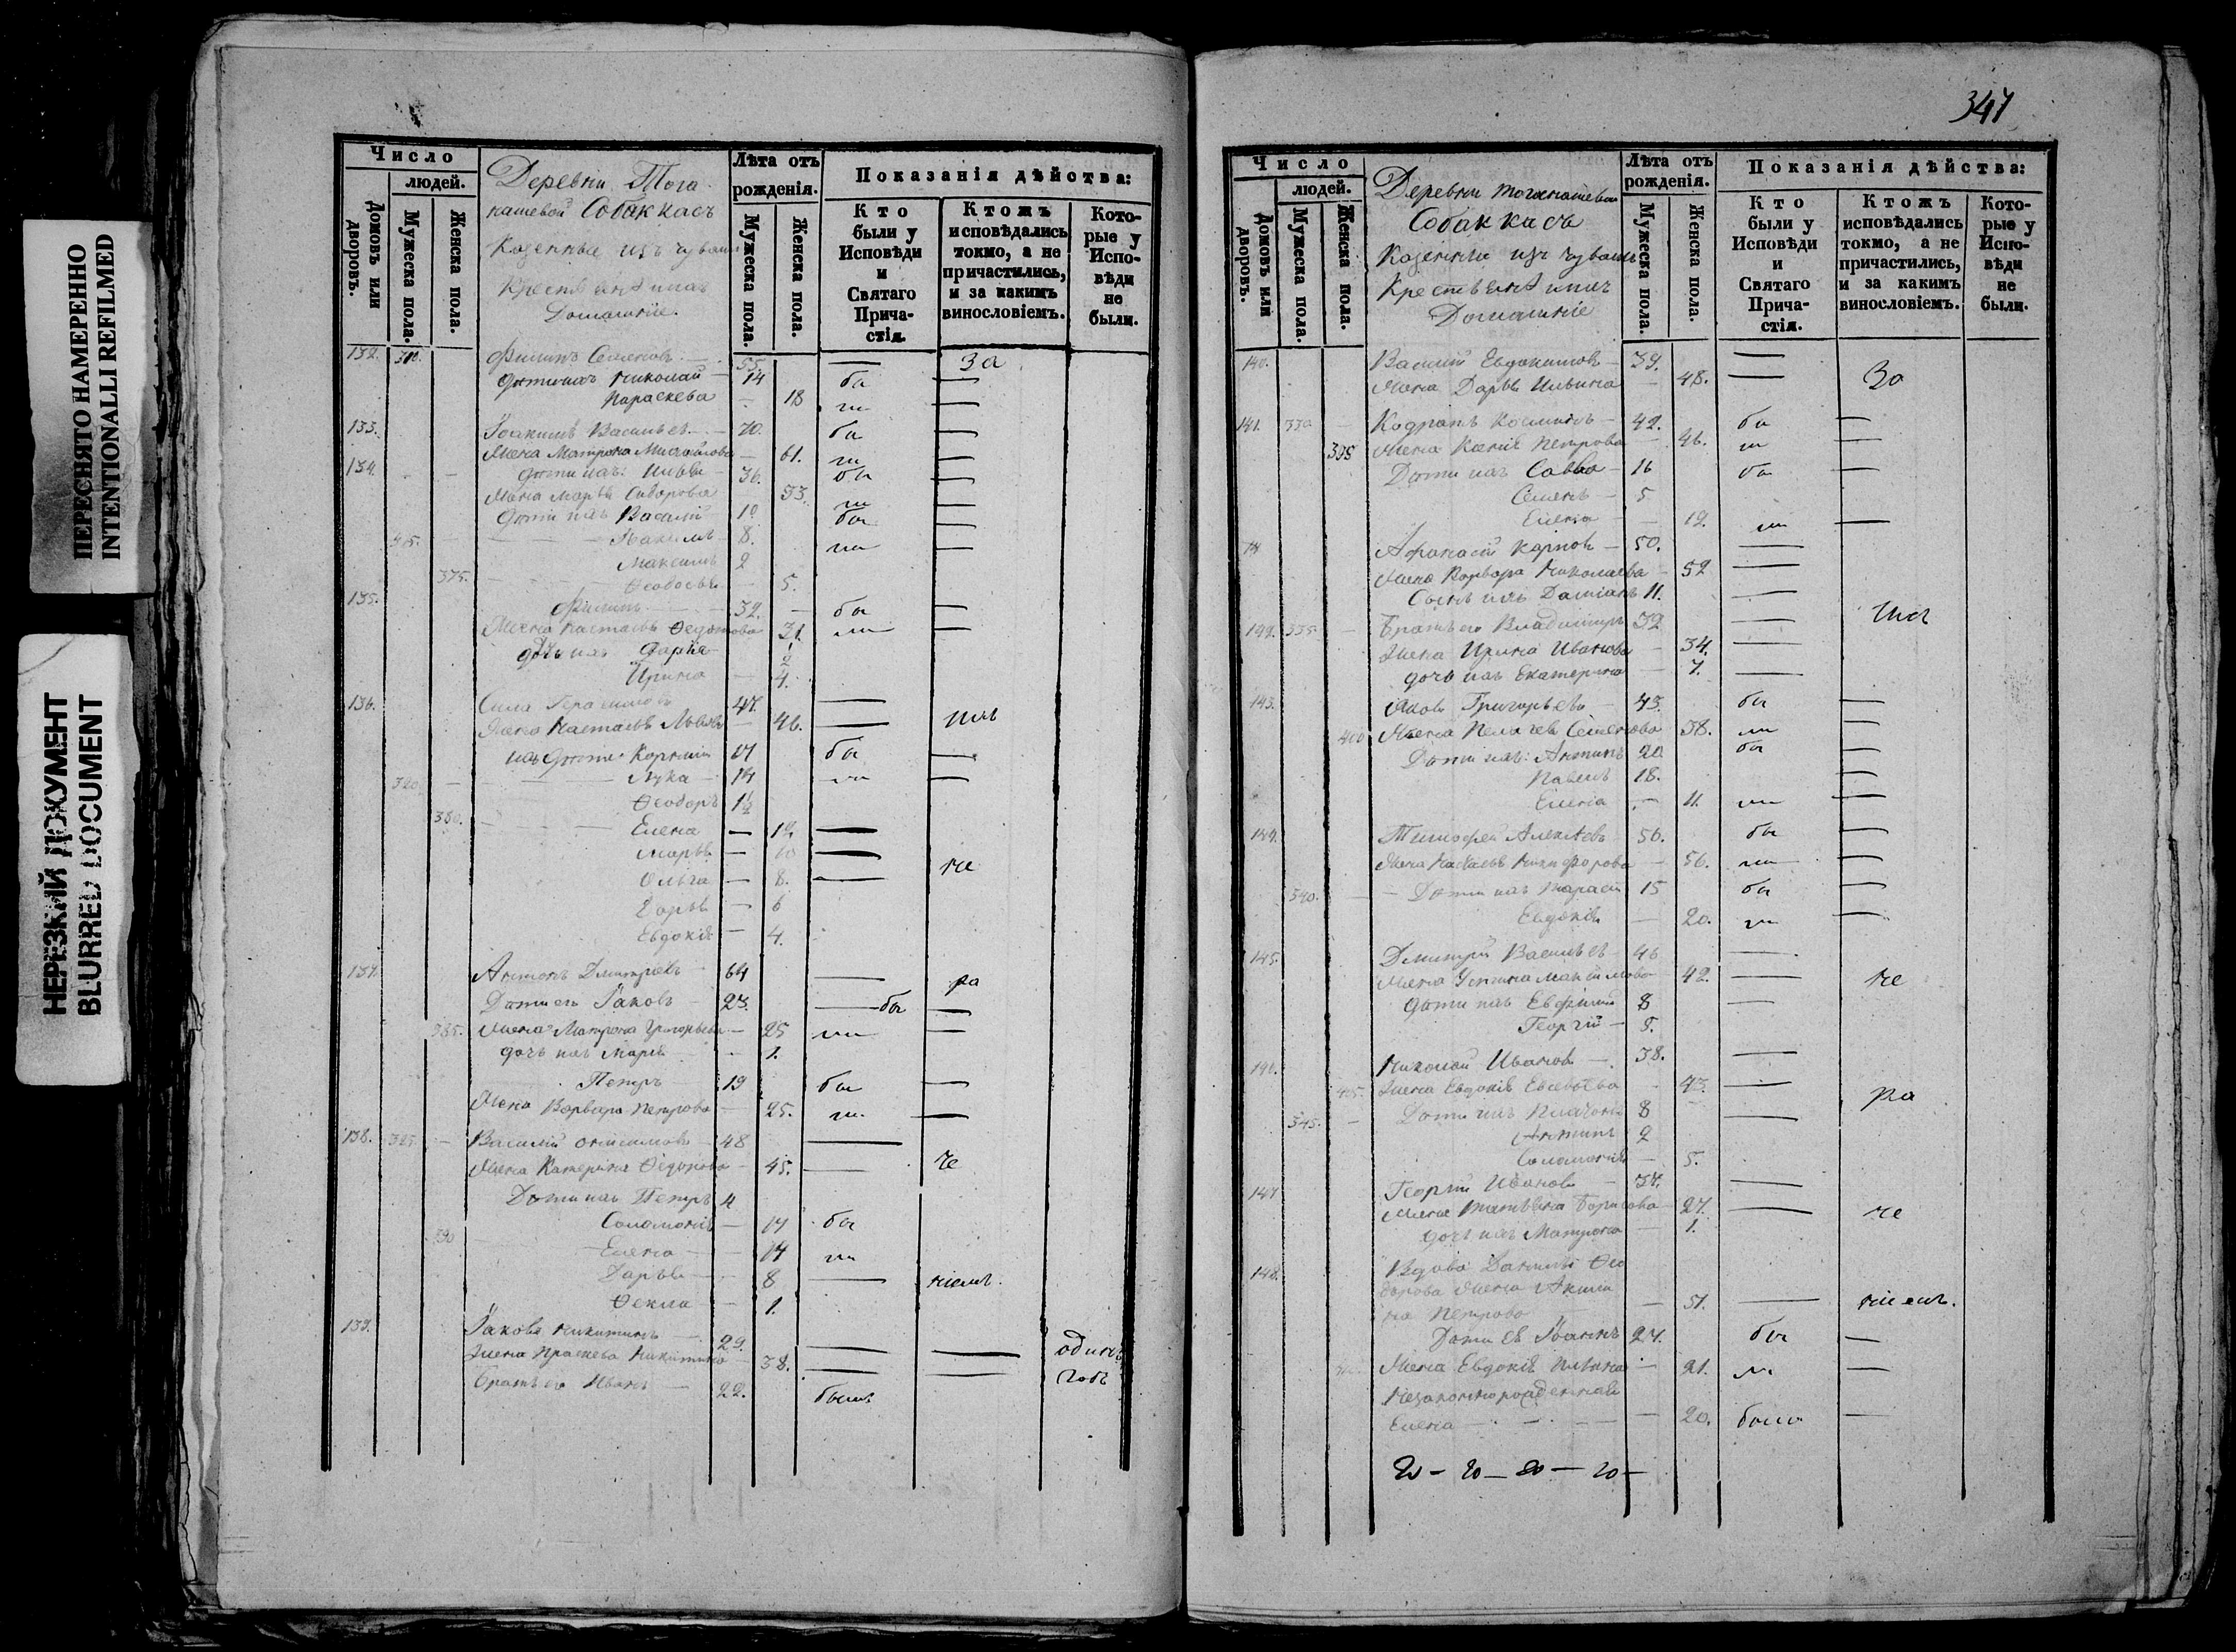 ПЕРЕСНЯТО НАМЕРЕННО
INTENTIONALLI REFILMED
НЕРЕЗКИЙ ДОКУМЕНТ
BLURRED DOCUMENT
Число
людей.
Домовъ или дворовъ.
Мужеска пола.
Женска пола.
Деревни Тога
кашевой Собаккасъ
Казенные изъ чувашъ
Крестьяне и ихъ
Домашніе.
Лѣта отъ рожденія.
Мужеска пола.
Женска пола.
Показанія дѣйства:
Кто были у Исповѣди и Святаго Прича-стія.
Ктожъ исповѣдались токмо, а не причастились, и за какимъ винословіемъ.
Кото-рые у Испо-вѣди не были.
132. Филипъ Семеновъ 55. — За
Дѣти ихъ Николай 14 бы —
Параскева — 18 ли —
133. Іоакимъ Васильевъ 70. бы —
Жена Матрона Михайлова — 61. ли —
134. дѣти ихъ: Илья 36. бы —
Жена Марья Сидорова 33. ли —
Дѣти ихъ Василій 10 бы —
Іакимъ 8. ли —
Максимъ 2
375. Ѳеодосья 5.
135. Филипъ 32. — бы —
Жена Настасья Федотова 31. ли —
дочь ихъ Дарья
Ирина — 4.
136. Сила Герасимовъ 47. —
Жена Настасья Львова — 46. — имъ
ихъ Дѣти Корнилій 17 бы —
320. Лука — 14 ли —
Ѳеодоръ 1½
380. Елена — 12 —
Марья — 10 —
Ольга — 8. — не
Дарья — 6
Евдокія — 4.
137. Антонъ Дмитріевъ 64 — ра
Дѣти его Іаковъ 23. — бы —
385. Жена Матрона Григорьева — 25 ли —
дочь ихъ Марія — 1.
Петръ 19 бы —
Жена Варвара Петрова — 25. ли —
138. 325. — Василій Онисимовъ 48 —
Жена Катерина Ѳедорова — 45. — че
Дѣти ихъ Петръ 4
Соломонія — 17 бы
390 Елена — 14 ли
Дарья — 8 — ніемъ.
Ѳекла — 1.
139. Іаковъ Никитинъ — 29. — — одинъ
Жена Праскева Никитина 38. — — годъ
Братъ его Иванъ — 22. былъ
347
Число
людей.
Домовъ или дворовъ.
Мужеска пола.
Женска пола.
Деревни Тоганашевой
Собаккасъ
Казенные изъ чувашъ
Крестьяне и ихъ
Домашніе
Лѣта отъ рожденія.
Мужеска пола.
Женска пола.
Показанія дѣйства:
Кто были у Исповѣди и Святаго Прича-стія.
Ктожъ исповѣдались токмо, а не причастились, и за какимъ винословіемъ.
Кото-рые у Испо-вѣди не были.
140. Василій Евдокимовъ — 39. —
Жена Дарья Ильина — 48. — За
141. 330 Кодратъ Косминъ — 42. бы —
395 Жена Ксенія Петрова — 46. ли —
Дѣти ихъ Савва — 16 бы —
Семенъ — 5
Елена — 19. ли —
Афанасій Карповъ — 50. —
Жена Варвара Николаева — 52 —
Сынъ ихъ Даміанъ 11. —
335. — Братъ его Владимиръ 32 — имъ
Жена Ирина Иванова — 34. —
дочь ихъ Екатерина — 7. —
143. Яковъ Григорьевъ — 43. бы —
400 Жена Пелагея Семенова 38. ли —
Дѣти ихъ: Антипъ 20 бы —
Павелъ 18. —
Елена — 11. ли —
144. Тимофей Алексѣевъ 56. бы —
Жена Наталья Никифорова — 56. ли —
340. — Дѣти ихъ Тарасій 15 бы —
Евдокія — 20. ли —
145. Дмитрій Васильевъ — 46 —
Жена Устина Максимова — 42. — не
Дѣти ихъ Евфимій 8 —
Георгій — 5.
Николай Ивановъ — 38. —
405. Жена Евдокія Евсевьева 43. — ра
345. — Дѣти ихъ Платонъ 8 —
Антипъ 2
Соломонія — 5.
147 Георгій Ивановъ — 37. —
Жена Татьяна Борисова 27. — че
дочь ихъ Матрона — 1.
148. Вдова Даниила Ѳео
дорова жена Акили
на Петрова — 51. — ніемъ.
Дѣти ея Іоаннъ 27. бы —
Жена Евдокія Ильина — 21. ли —
Незаконнорожденная
Елена — 20. была —
20 — 20 — 20 — 20 —